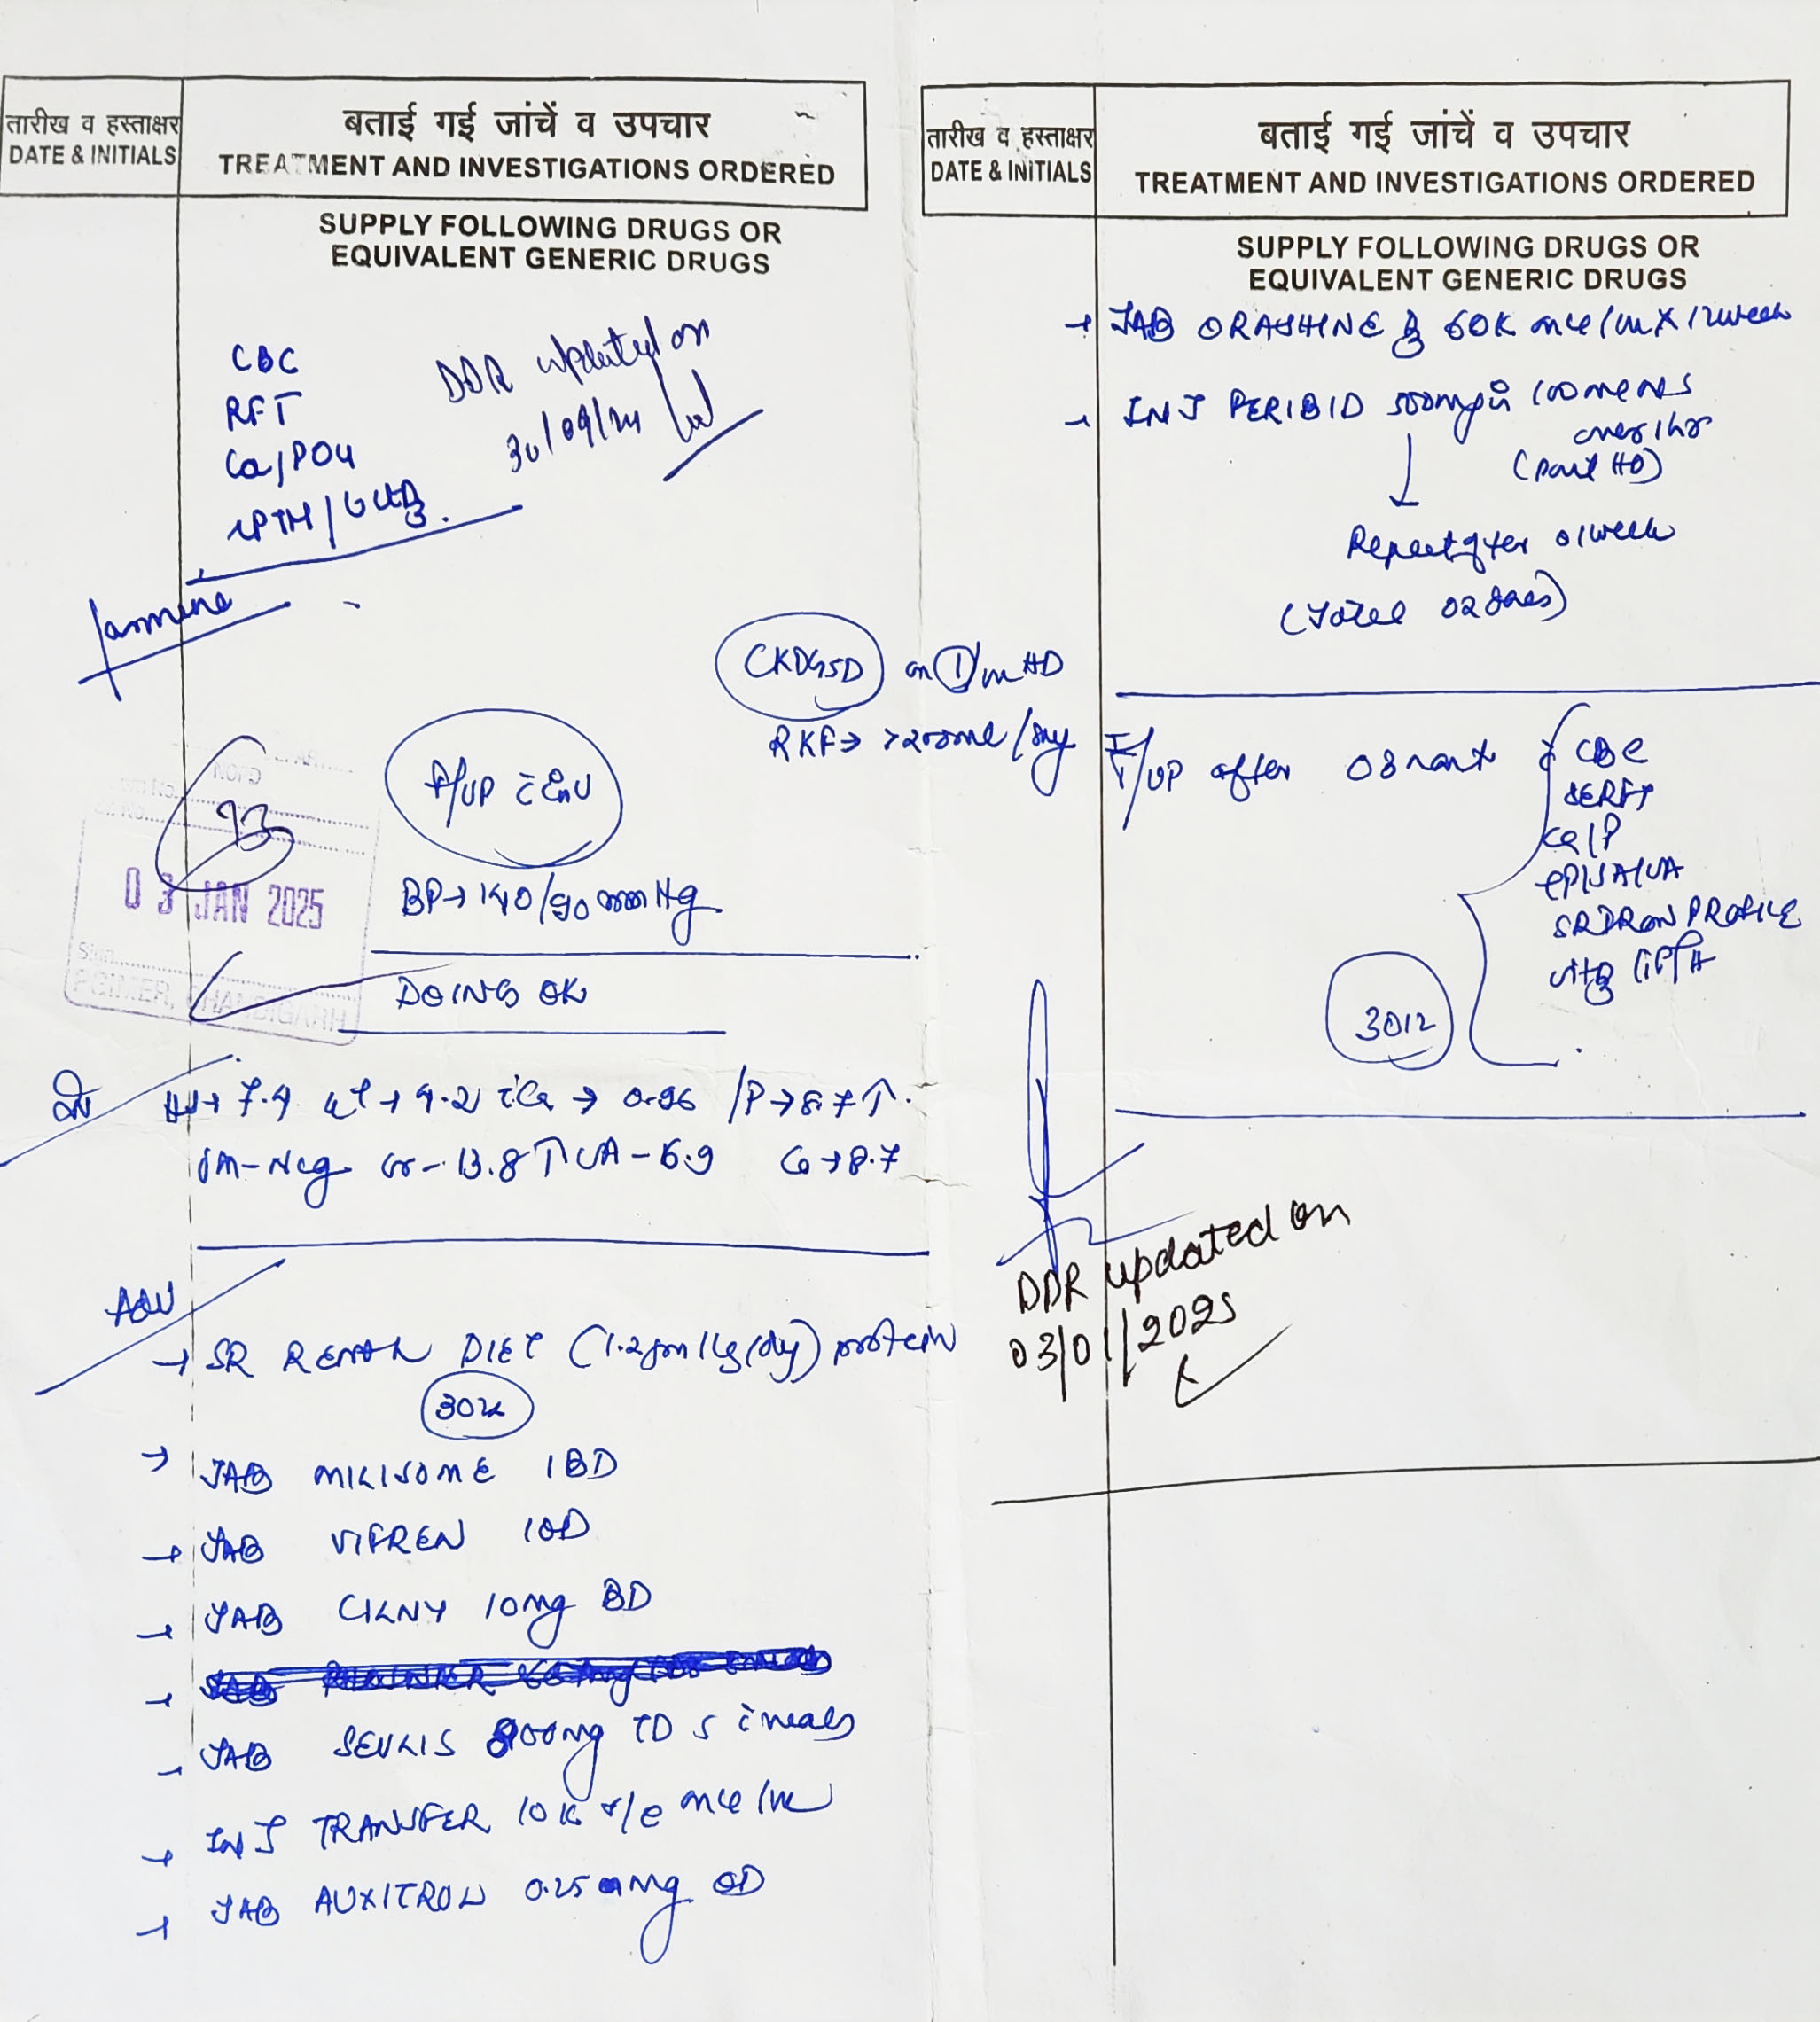 तारीख व हस्ताक्षर
DATE & INITIALS
बताई गई जांचें व उपचार
TREATMENT AND INVESTIGATIONS ORDERED
SUPPLY FOLLOWING DRUGS OR
EQUIVALENT GENERIC DRUGS
CBC
RFT
Ca/PO4
iPTH/
DDR updated on
30/09/24
Jasmine
CKDG5D on HD
RKF→ >200ml/day
F/UP
93
03 JAN 2025
PGIMER, CHANDIGARH
BP→140/90mmHg
DOING OK
Hb→7.4 → 4.2 iCa → 0.96 /P→8.7↑
Cr-13.8↑ UA-6.9 Ca→8.7
ADV
→ SR RENAL DIET (1.2gm/kg/day) protein
→ TAB 1BD
→ TAB VIFREN 1OD
→ TAB CILNY 10mg BD
→ TAB SEVLIS 800mg TDS c meals
→ INJ TRANSFER 10K s/c
→ TAB AUXITROL 0.25 mg OD
तारीख व हस्ताक्षर
DATE & INITIALS
बताई गई जांचें व उपचार
TREATMENT AND INVESTIGATIONS ORDERED
SUPPLY FOLLOWING DRUGS OR
EQUIVALENT GENERIC DRUGS
→ TAB 60K X 12week
→ INJ 500mg in 100ml NS
over 1hr
(post HD)
Repeat after 01week
(Total 02 doses)
F/UP after 03
CBC
Ca/P
SR IRON PROFILE
3012
DDR updated on
03/01/2025